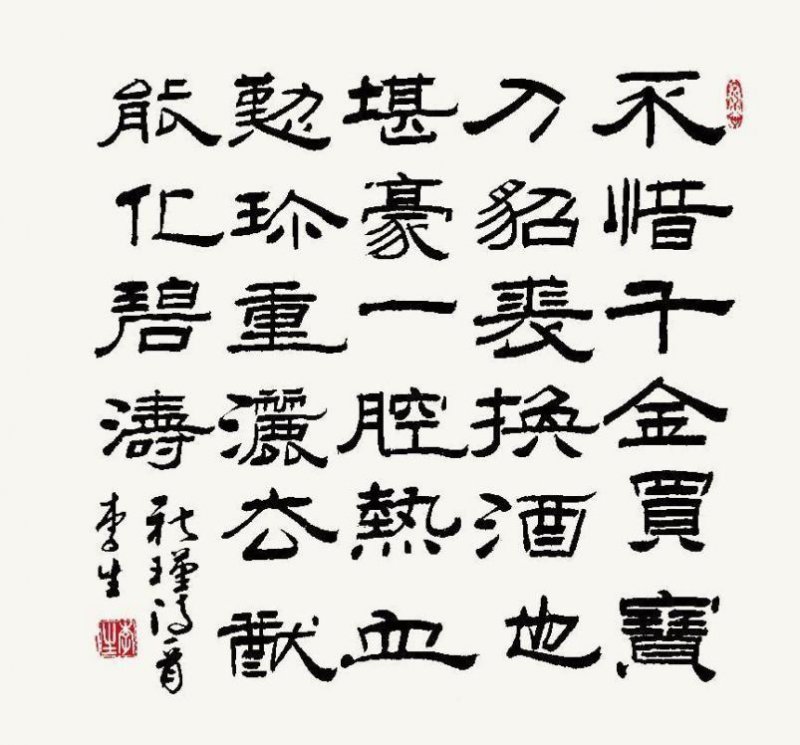 不惜千金買寶
刀貂裘換酒也
堪豪一腔熱血
勤珎重灑去猷
能化碧濤
秋瑾詩一首
李生